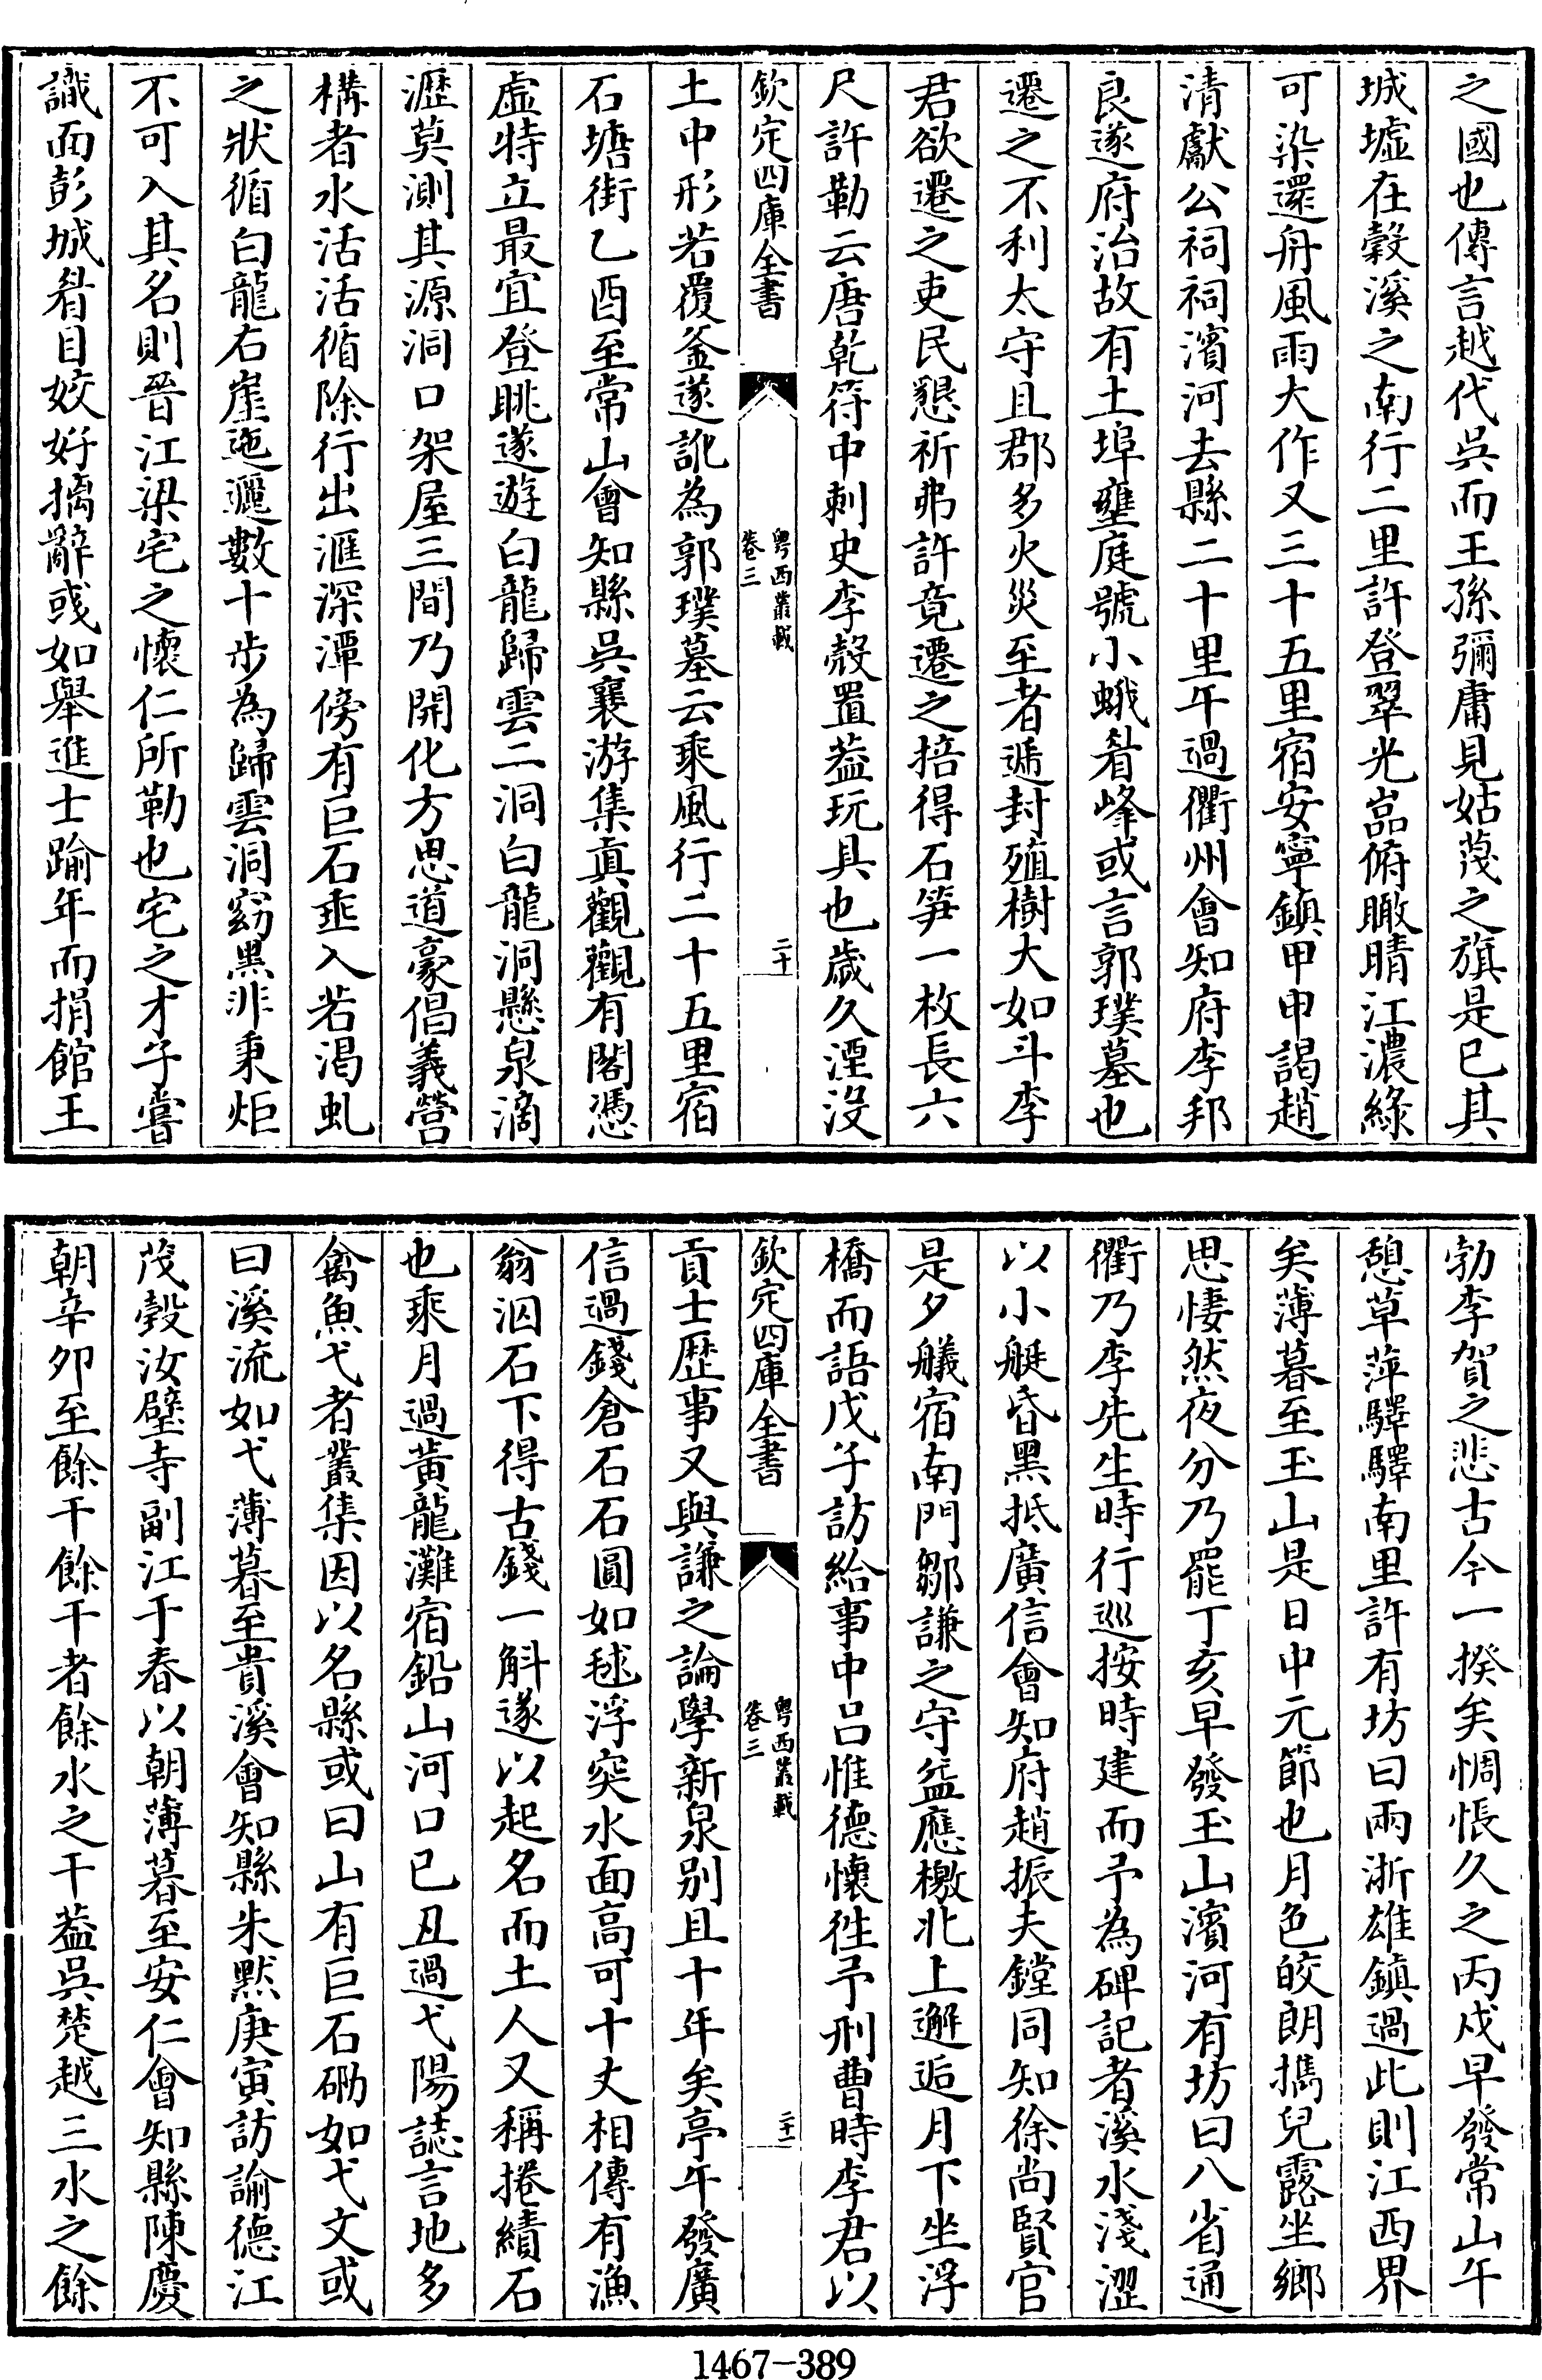 之國也傳言越代吳而王孫彌庸見姑蔑之旗是已其
城墟在穀溪之南行二里許登翠光嵓俯瞰晴江濃綠
可染還舟風雨大作又三十五里宿安寧鎮甲申謁趙
清獻公祠祠濱河去縣二十里午過衢州會知府李邦
良遂府治故有土埠壅庭號小蛾眉峰或言郭璞墓也
遷之不利太守且郡多火災至者遞封殖樹大如斗李
君欲遷之吏民懇祈弗許竟遷之掊得石笋一枚長六
尺許勒云唐乾符中刺史李㱿置葢玩具也歲久湮没
欽定四庫全書
粤西叢載
卷三
二十
土中形若覆釜遂訛為郭璞墓云乘風行二十五里宿
石塘街乙酉至常山會知縣吳襄游集真觀觀有閣憑
虛特立最宜登眺遂遊白龍歸雲二洞白龍洞懸泉滴
瀝莫測其源洞口架屋三間乃開化方思道豪倡義營
構者水活活循除行出滙深潭傍有巨石垂入若渴虬
之狀循白龍右崖迤邐數十步為歸雲洞窈黑非秉炬
不可入其名則晉江梁宅之懷仁所勒也宅之才子嘗
識面彭城眉目姣好摛辭彧如舉進士踰年而捐館王
勃李賀之悲古今一揆矣惆悵久之丙戍早發常山午
憩草萍驛驛南里許有坊曰兩浙雄鎮過此則江西界
矣薄暮至玉山是日中元節也月色皎朗擕兒露坐鄉
思悽然夜分乃罷丁亥早發玉山濱河有坊曰八省通
衢乃李先生時行巡按時建而予為碑記者溪水淺澀
以小艇昏黑抵廣信會知府趙振夫鏜同知徐尚賢官
是夕艤宿南門鄒謙之守益應檄北上邂逅月下坐浮
橋而語戊子訪給事中吕惟德懷徃予刑曹時李君以
欽定四庫全書
粤西叢載
卷三
二十一
貢士歴事又與謙之論學新泉别且十年矣亭午發廣
信過錢倉石石圓如毬浮突水面高可十丈相傳有漁
翁泅石下得古錢一斛遂以起名而土人又稱捲績石
也乘月過黄龍灘宿鉛山河口已丑過弋陽誌言地多
禽魚弋者叢集因以名縣或曰山有巨石砌如弋文或
曰溪流如弋薄暮至貴溪會知縣朱黙庚寅訪諭德江
茂穀汝璧寺副江于春以朝薄暮至安仁會知縣陳慶
朝辛夘至餘干餘干者餘水之干葢吳楚越三水之餘
1467-389